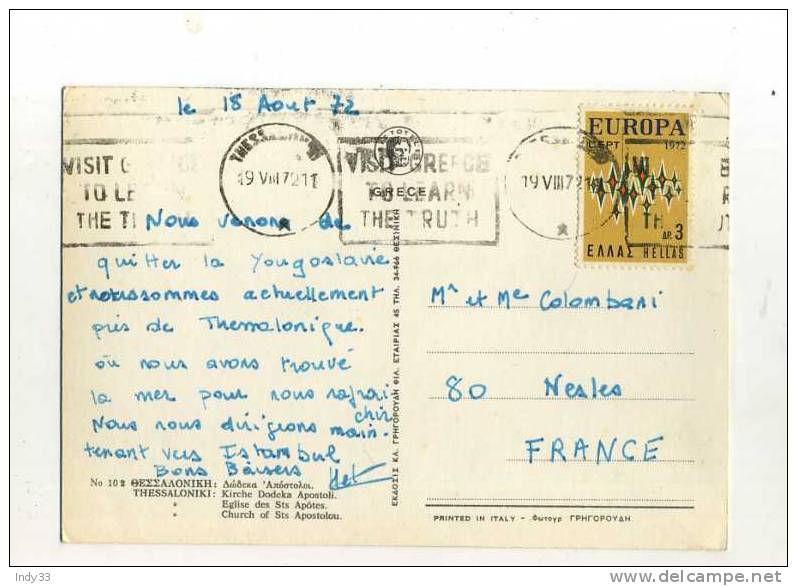 le 18 Aout 72
THESSALONIKI
19 VIII 72 11
VISIT GREECE
TO LEARN
THE TRUTH
GREECE
19 VIII 72
EUROPA
CEPT 1972
ΔΡ. 3
ΕΛΛΑΣ HELLAS
Nous venons de
quitter la Yougoslavie
et nous sommes actuellement
près de Thessalonique.
où nous avons trouvé
la mer pour nous rafraî
chir
Nous nous dirigeons main-
tenant vers Istambul
Bons Baisers
Mr et Me Colombani
80 Nesles
FRANCE
ΕΚΔΟΣΙΣ ΚΛ. ΓΡΗΓΟΡΟΥΔΗ ΦΙΛ. ΕΤΑΙΡΙΑΣ 45 ΤΗΛ. 34-966 ΘΕΣ)ΝΙΚΗ
No 102 ΘΕΣΣΑΛΟΝΙΚΗ: Δώδεκα Ἀπόστολοι.
THESSALONIKI: Kirche Dodeka Apostoli.
" Eglise des Sts Apôtes.
" Church of Sts Apostolou.
PRINTED IN ITALY - Φωτογρ ΓΡΗΓΟΡΟΥΔΗ
Indy33
delcampe.net